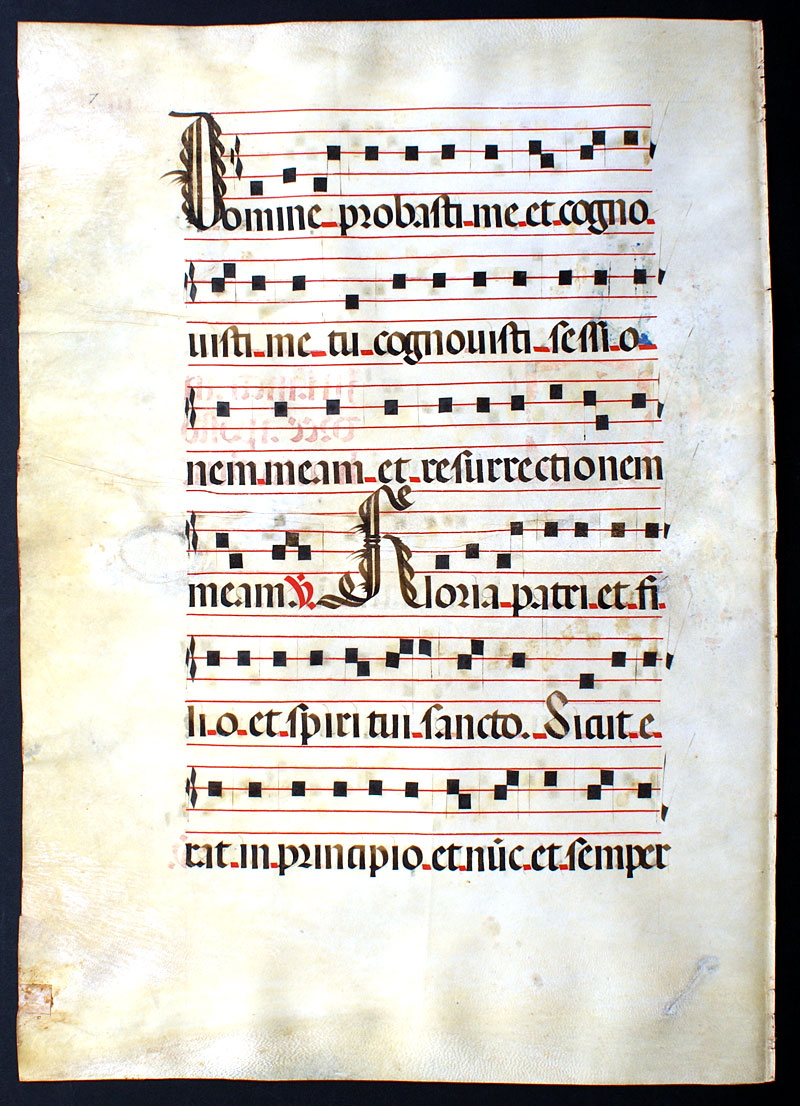 Domine probasti me et cogno
uisti me tu cognouisti sessio
nem meam et resurrectionem
meam. V. Gloria patri et fi
lio et spiritui sancto. Sicut e
rat in principio et nūc et semper